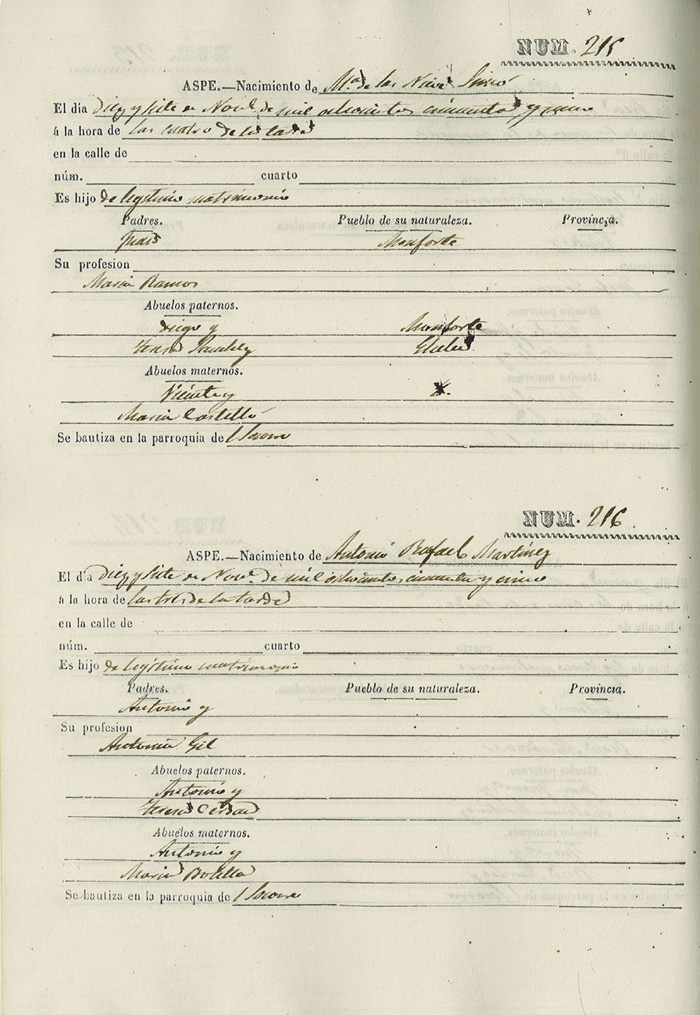 NUM. 215
ASPE.—Nacimiento de Mª de las Nieves
El día diez y siete de Nov.e de mil ochocientos cincuenta y cinco
á la hora de las cuatro de la tarde
en la calle de
núm. cuarto
Es hijo de legitimo matrimonio
Padres. Pueblo de su naturaleza. Provincia.
Monforte
Su profesion
Maria Ramos
Abuelos paternos.
Diego y Monforte
Teresa Sanchez
Abuelos maternos.
Vicente y
Maria Castelló
Se bautiza en la parroquia de
NUM. 216
ASPE.—Nacimiento de Antonio Rafael Martinez
El día diez y siete de Nov.e de mil ochocientos cincuenta y cinco
á la hora de las tres de la tarde
en la calle de
núm. cuarto
Es hijo de legitimo matrimonio
Padres. Pueblo de su naturaleza. Provincia.
Antonio y
Su profesion
Antonia Gil
Abuelos paternos.
Antonio y
Teresa
Abuelos maternos.
Antonio y
Maria Botella
Se bautiza en la parroquia de